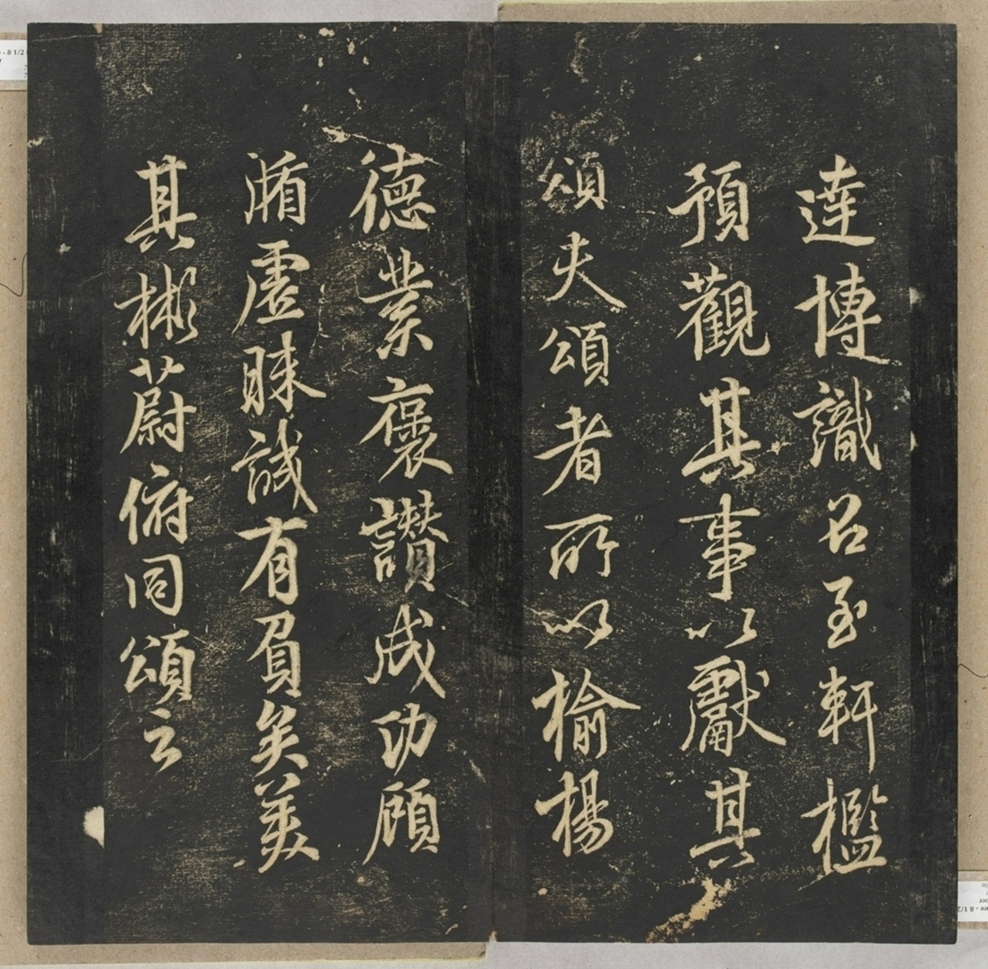 達博識召至軒檻
預觀其事以獻其
頌夫頌者所以榆楊
德業褒讚成功顧
循虛昧誠有負矣美
其彬蔚俯同頌云